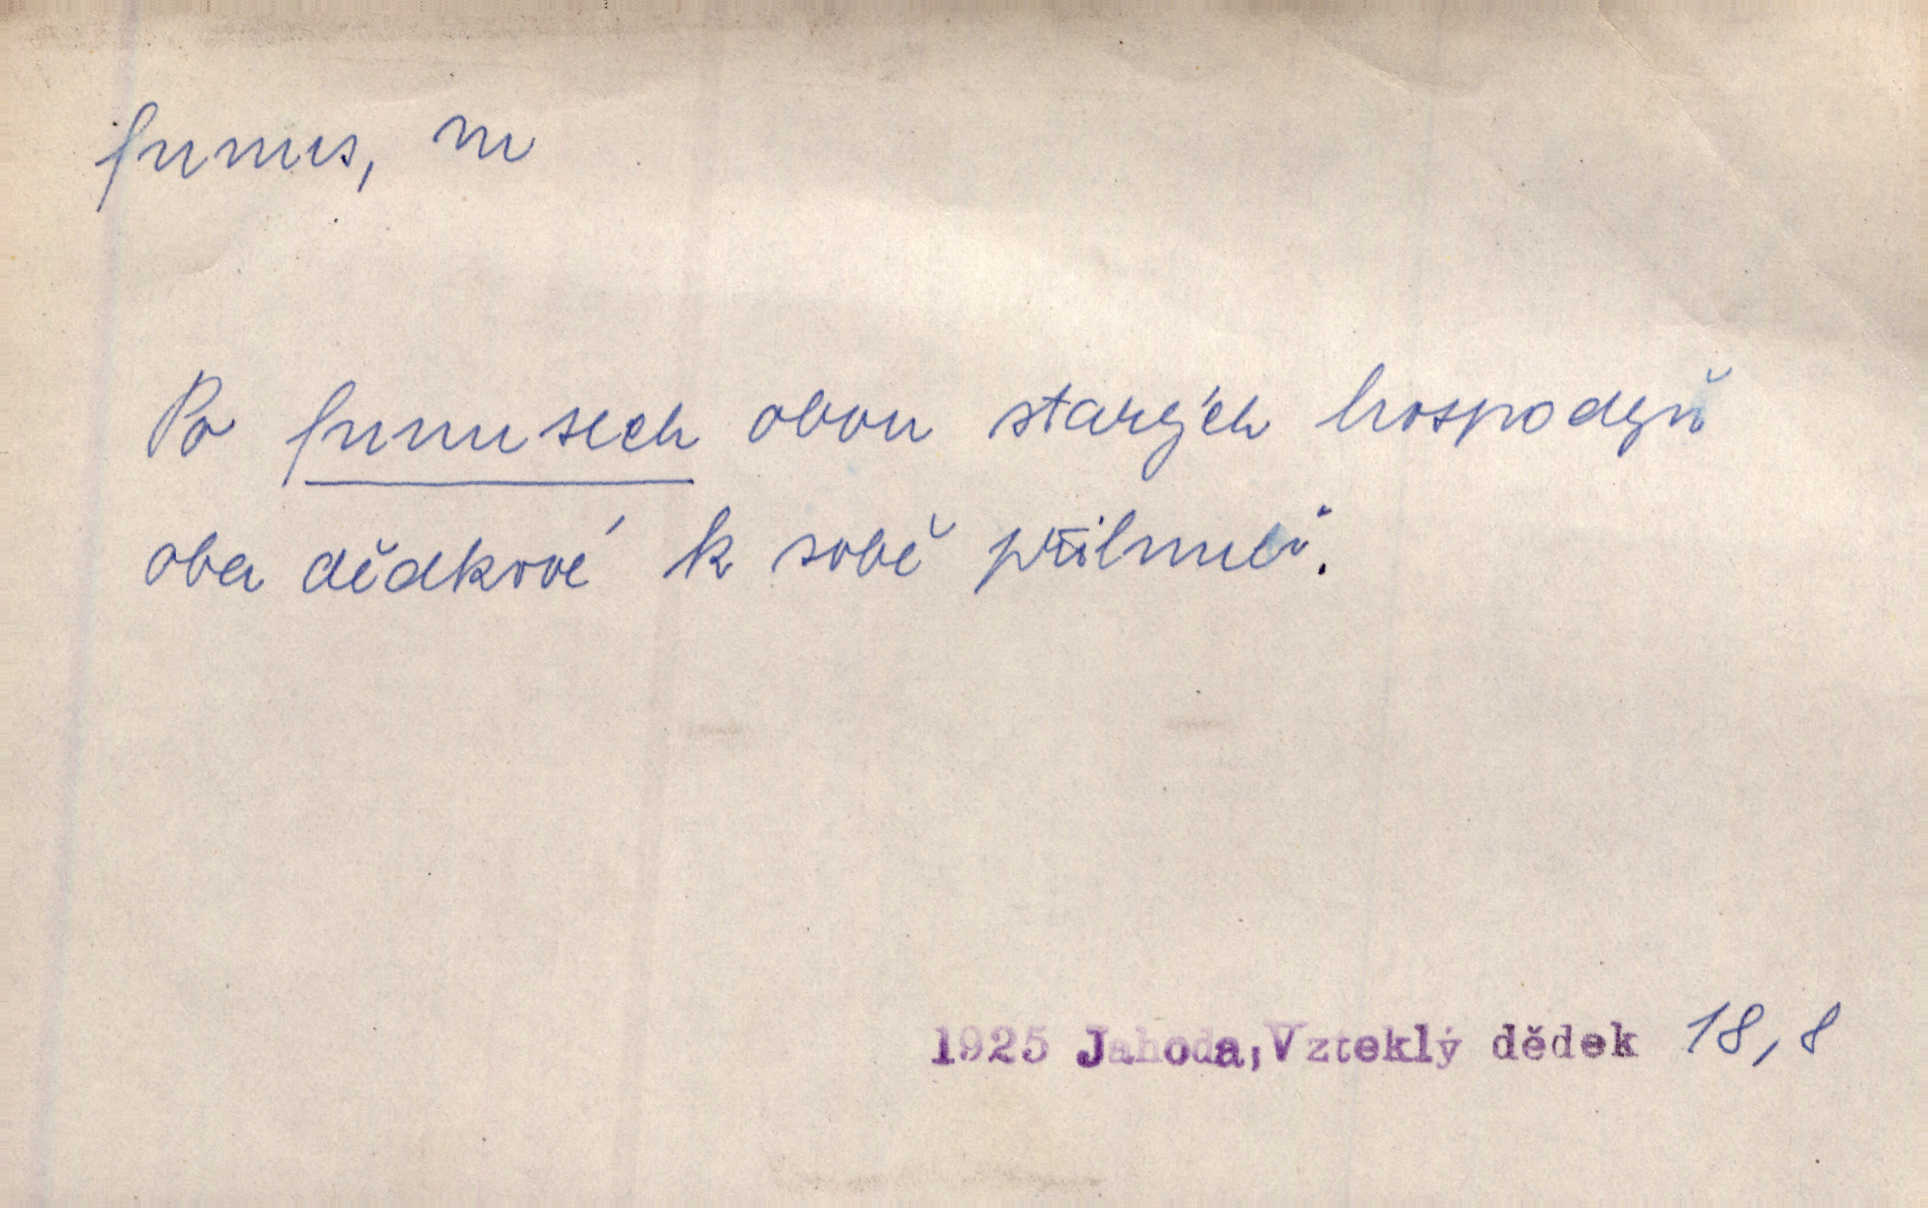 funus, m
Po funusech obou starých hospodyň
oba dědkové k sobě přilnuli.
1925 Jahoda, Vzteklý dědek 18, 8